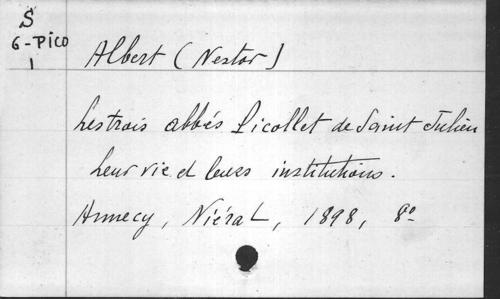 S
6-Pico
1
Albert (Nestor)
Les trois abbés Picollet de Saint Julien
Leur vie et leurs institutions.
Annecy, Niérat, 1898, 8º